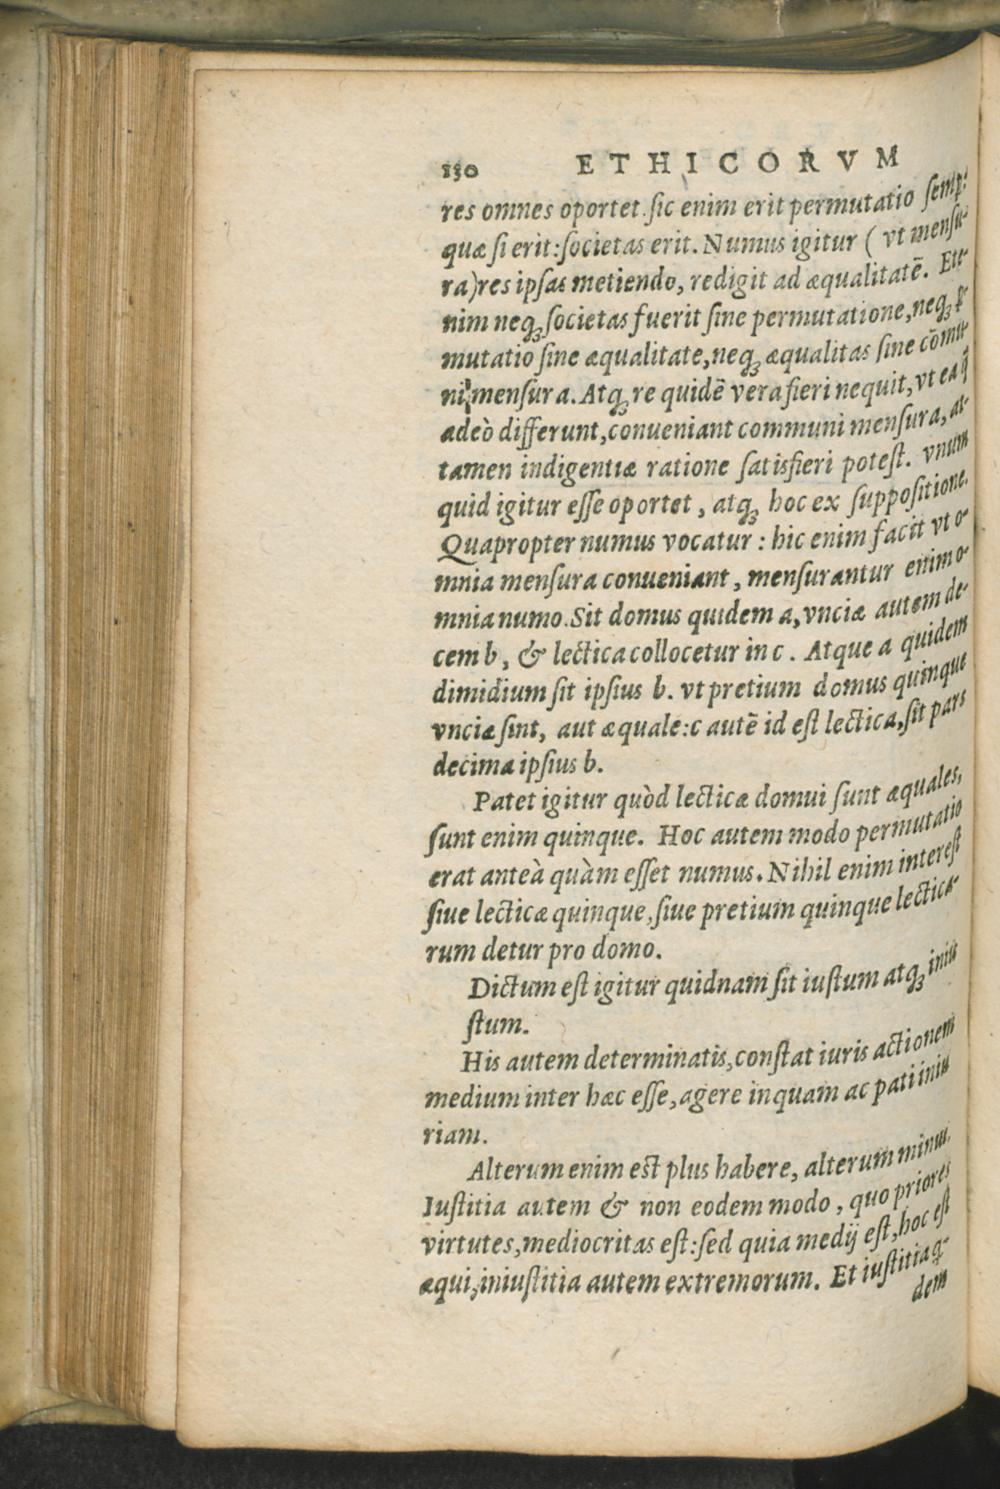 130 ETHICORVM
res omnes oportet. sic enim erit permutatio semp:
quæ si erit: societas erit. Numus igitur ( vt mensu-
ra) res ipsas metiendo, redigit ad æqualitatē. Ete-
nim neqꝫ societas fuerit sine permutatione, neqꝫ ꝑ-
mutatio sine æqualitate, neqꝫ æqualitas sine cōmu-
ni mensura. Atqꝫ re quidē vera fieri nequit, vt ea q̄
adeò differunt, conueniant communi mensura, at-
tamen indigentiæ ratione satisfieri potest. vnum
quid igitur esse oportet, atqꝫ hoc ex suppositione.
Quapropter numus vocatur: hic enim facit vt o-
mnia mensura conueniant, mensurantur enim o-
mnia numo. Sit domus quidem a, vnciæ autem de-
cem b, & lectica collocetur in c. Atque a quidem
dimidium sit ipsius b. vt pretium domus quinque
vnciæ sint, aut æquale: c autē id est lectica, sit pars
decima ipsius b.
Patet igitur quòd lecticæ domui sunt æquales,
sunt enim quinque. Hoc autem modo permutatio
erat anteà quàm esset numus. Nihil enim interest
siue lecticæ quinque, siue pretium quinque lectica-
rum detur pro domo.
Dictum est igitur quidnam sit iustum atqꝫ iniu
stum.
His autem determinatis, constat iuris actionem
medium inter hæc esse, agere inquam ac pati iniu
riam.
Alterum enim est plus habere, alterum minus.
Iustitia autem & non eodem modo, quo priores
virtutes, mediocritas est: sed quia medij est, hoc est
æqui, iniustitia autem extremorum. Et iustitia q̄-
dem